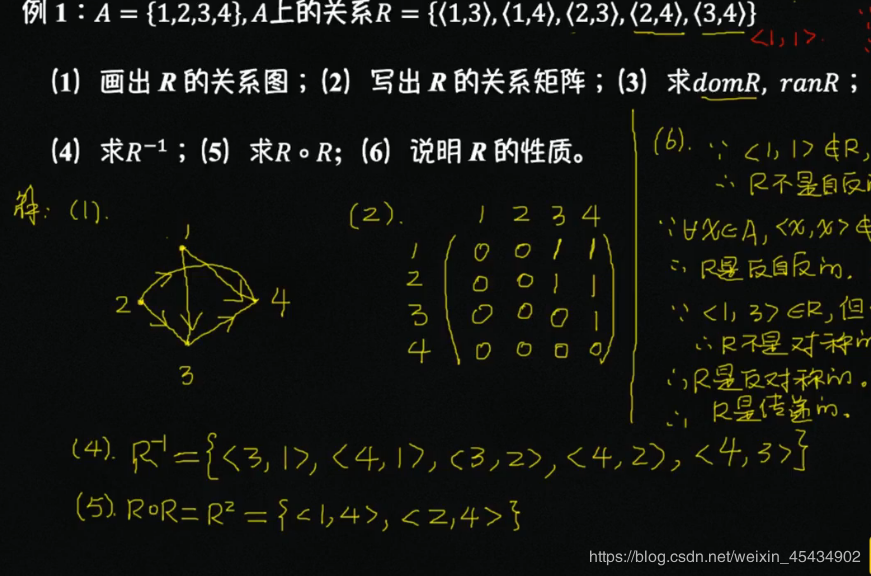 例 1：A = {1,2,3,4}, A上的关系R = {⟨1,3⟩,⟨1,4⟩,⟨2,3⟩,⟨2,4⟩,⟨3,4⟩}
<1,1>.
（1）画出 R 的关系图；（2）写出 R 的关系矩阵；（3）求domR, ranR；
（4）求R⁻¹；（5）求R∘R;（6）说明 R 的性质。
解: (1).
1
2
4
3
(2).
1 2 3 4
1 0 0 1 1
2 0 0 1 1
3 0 0 0 1
4 0 0 0 0
(6). ∵ <1,1>∉R,
∴ R不是自反
∵∀x∈A, <x,x>∉
∴ R是反自反的.
∵ <1,3>∈R, 但
∴ R不是对称的
∴R是反对称的。
∴ R是传递的.
(4). R⁻¹={<3,1>, <4,1>, <3,2>, <4,2>, <4,3>}
(5). R∘R=R²={<1,4>, <2,4>}
https://blog.csdn.net/weixin_45434902